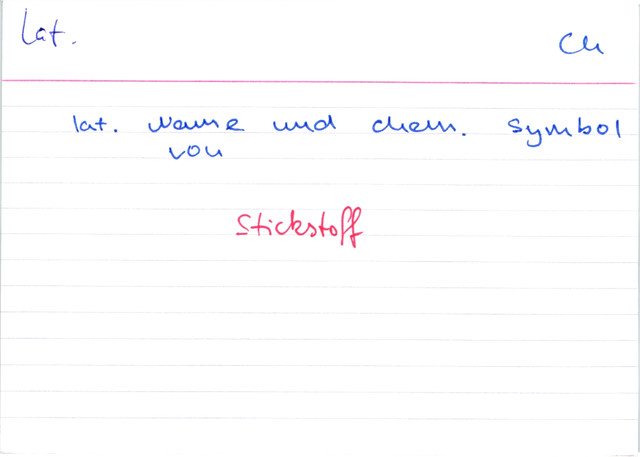 Lat.
Ch
lat. Name und chem. Symbol
von
Stickstoff